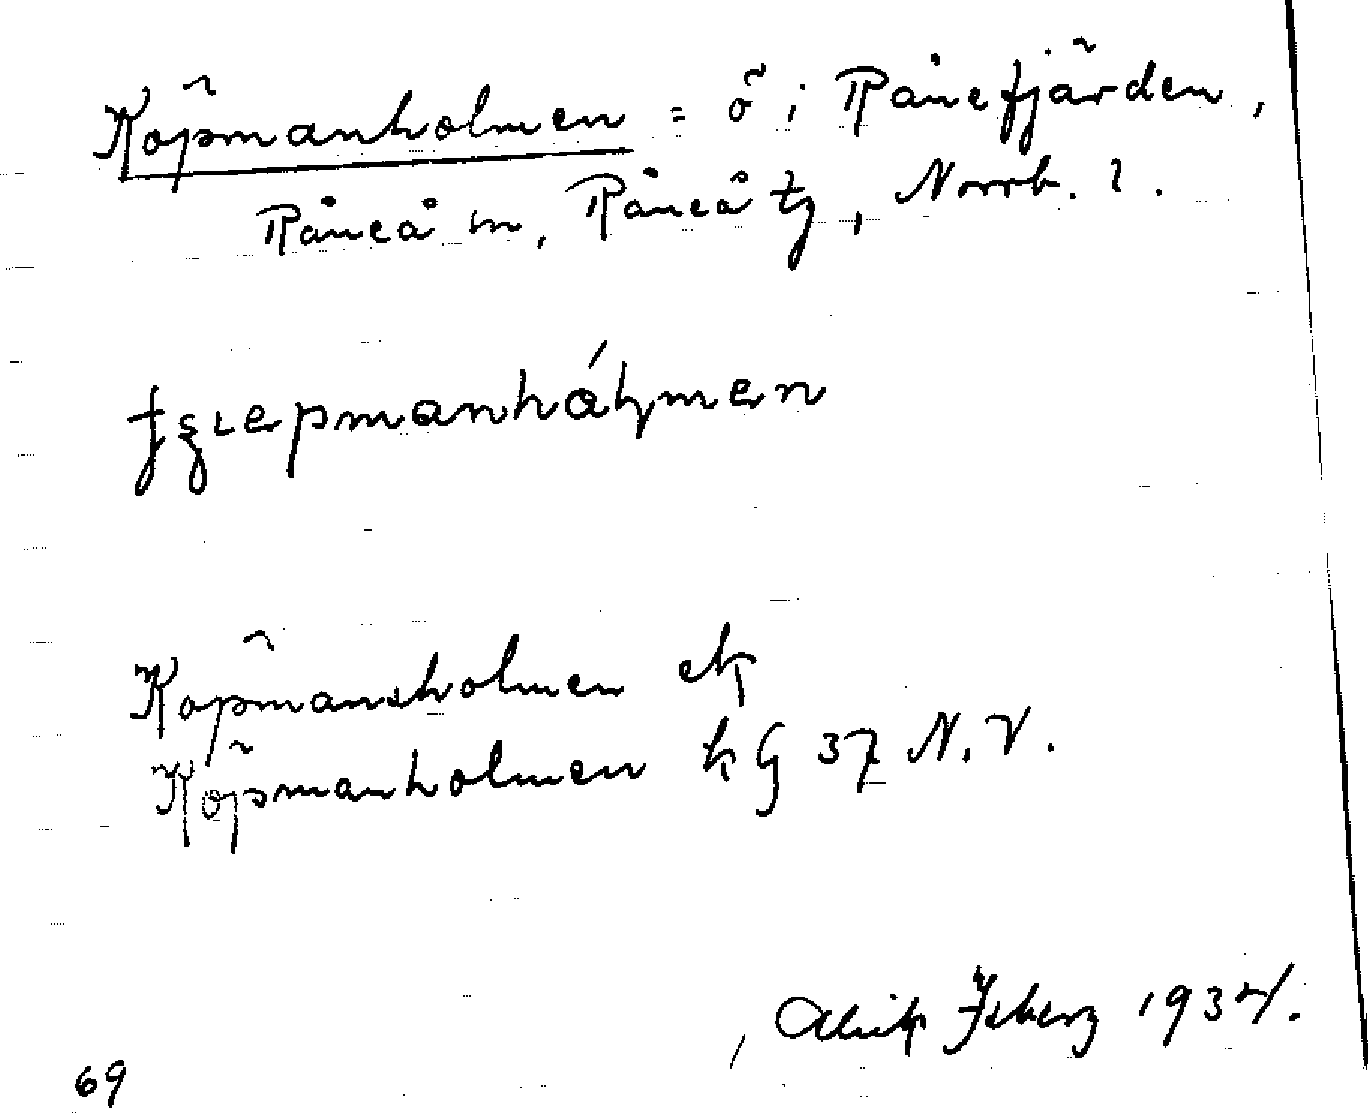 Köpmanholmen = ö i Rånefjärden,
Råneå sn, Råneå tg, Norrb. l.
Köpmansholmen ek
Köpmanholmen kG 37 N.V.
Isberg 1934.
69